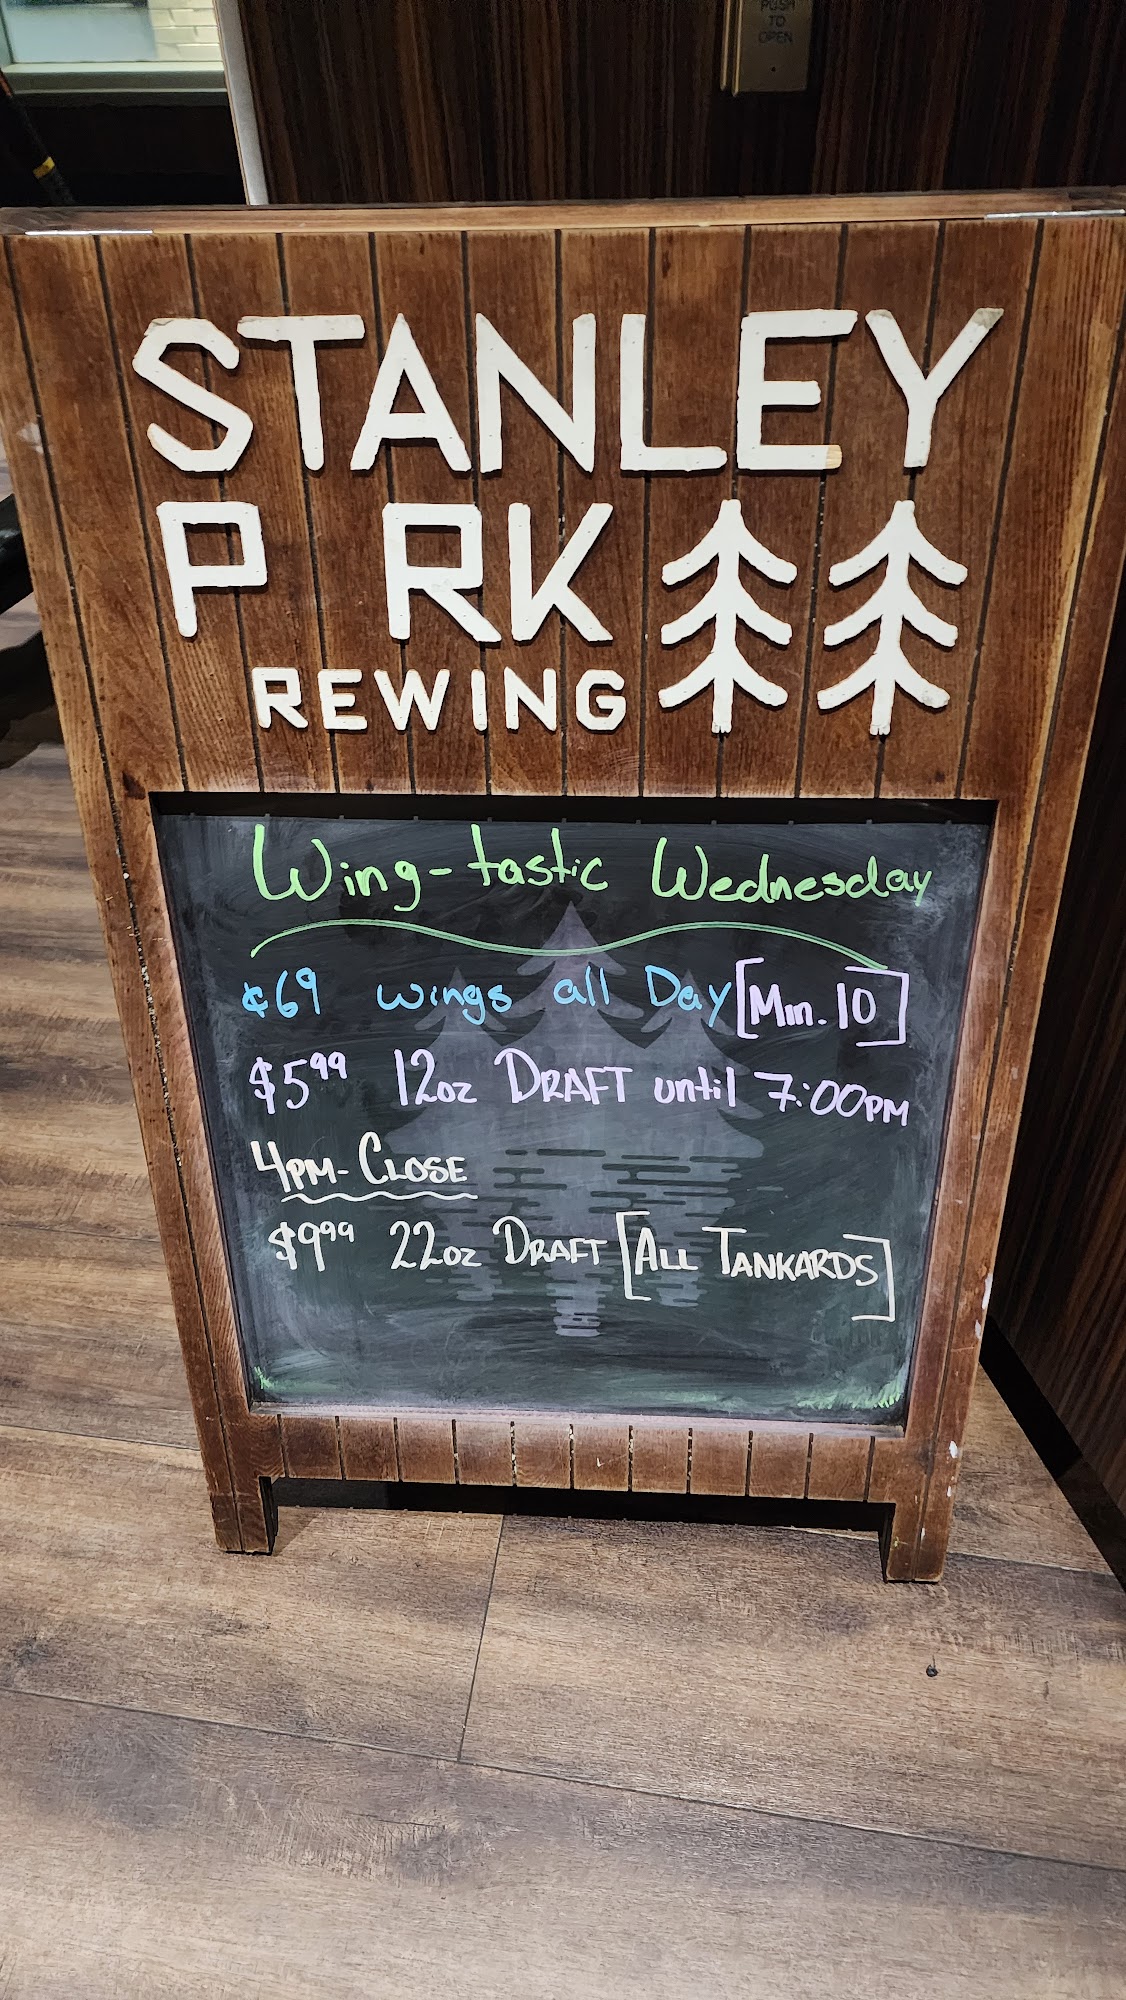 PUSH
TO
OPEN
STANLEY
P RK
REWING
Wing-tastic Wednesday
¢69 wings all Day [Min. 10]
$5.99 12oz DRAFT until 7:00PM
4PM-CLOSE
$9.99 22oz DRAFT [ALL TANKARDS]